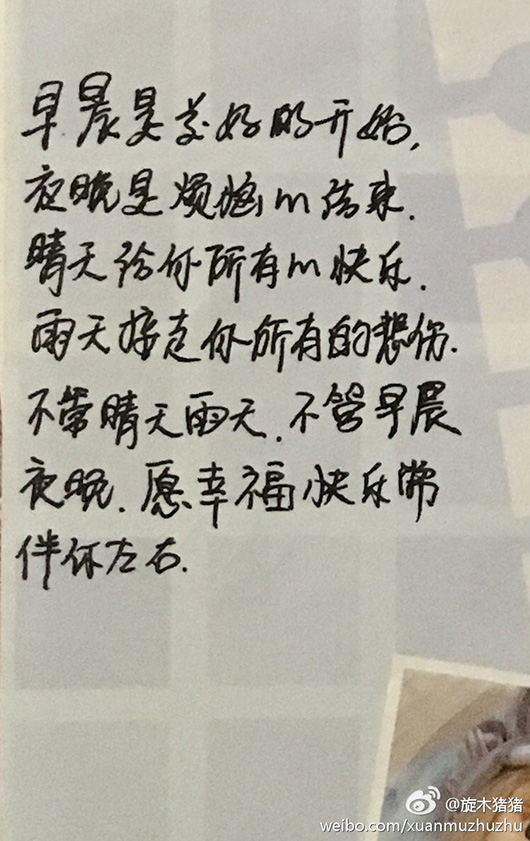 早晨是美好的开始,
夜晚是烦恼的结束.
晴天给你所有的快乐.
雨天接走你所有的悲伤.
不管晴天雨天.不管早晨
夜晚.愿幸福快乐常
伴你左右.
@旋木猪猪
weibo.com/xuanmuzhuzhu